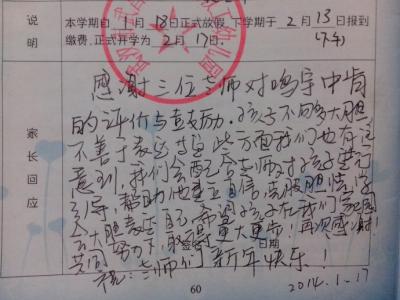 说明
本学期自1月18日正式放假,下学期于2月13日报到
缴费,正式开学为2月17日。
家长回应
感谢三位老师对鸣宇中肯
的评价与鼓励。孩子不够大胆,
不善于表达 这些方面我们也有注
意到,我们会配合老师对孩子进行
引导,帮助他建立自信,克服胆怯,学
会大胆表达自己 希望孩子在我们
共同努力下,取得更大进步!再次感谢!
日期
祝:老师们新年快乐!
2014.1.17
60